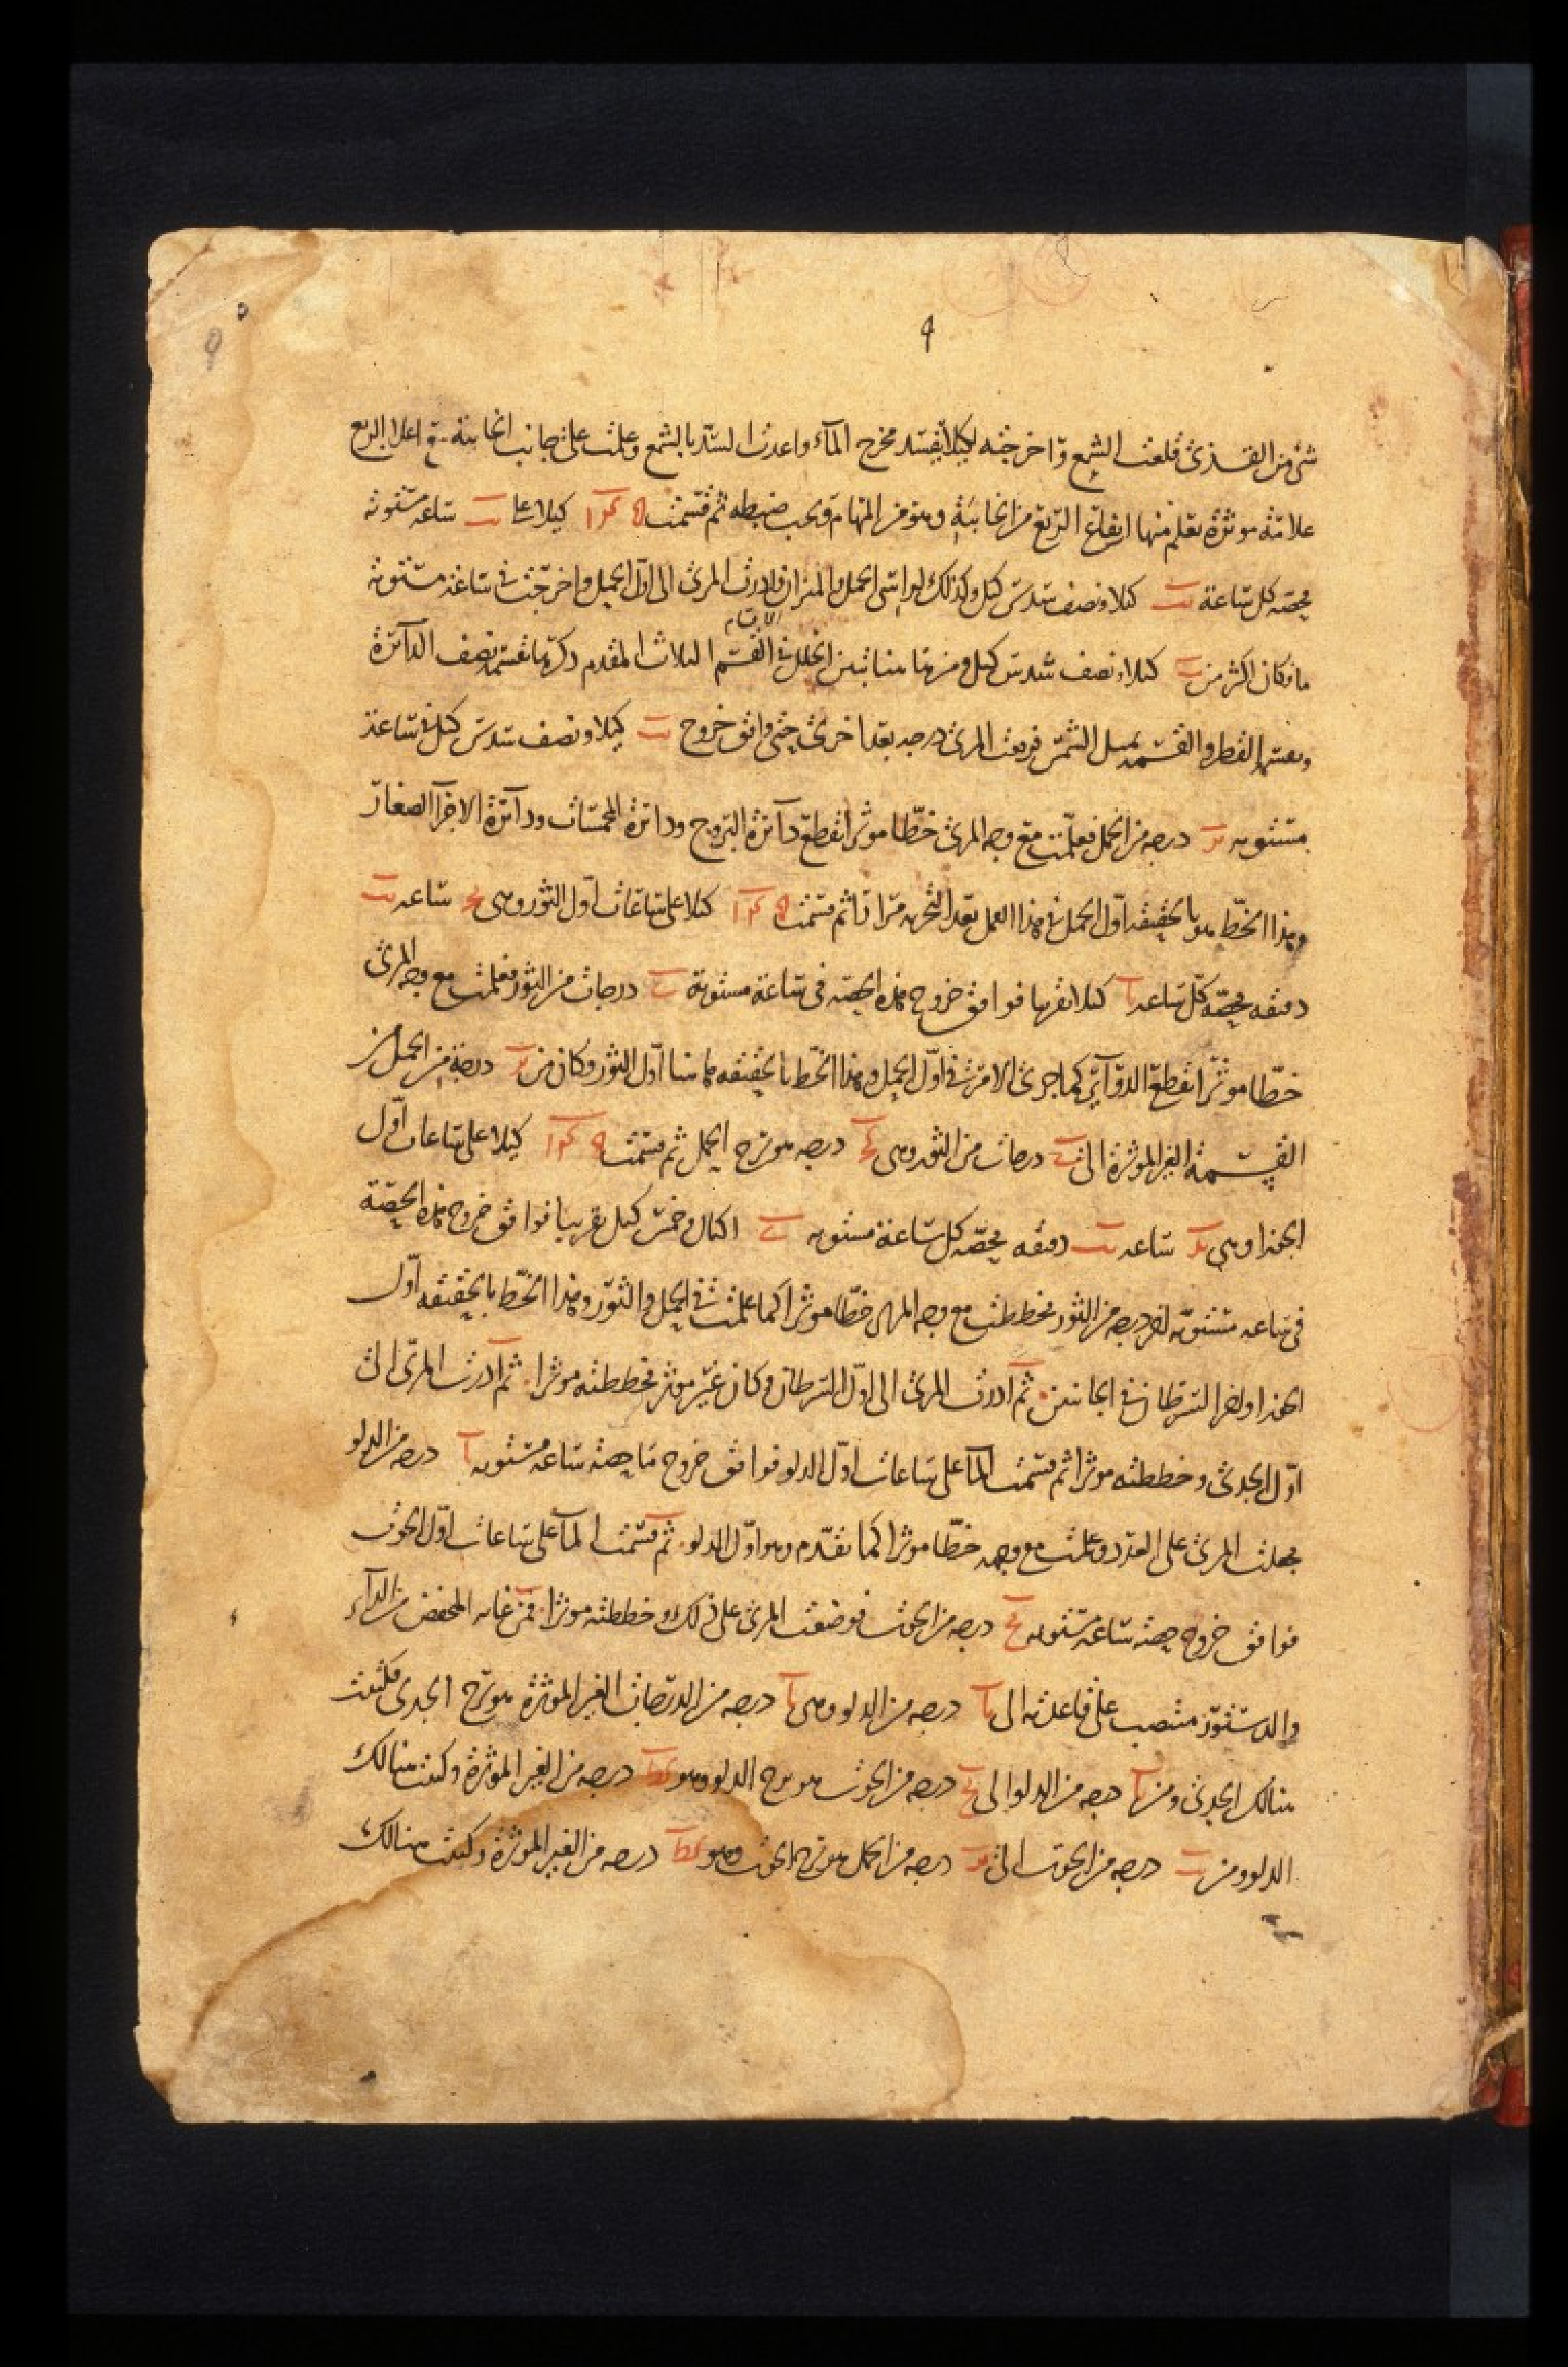 ٩
شئ من القذى قلعت الشمع واخرجته لئلا يفسد مخرج المآء واعدت السدّ بالشمع وعلمت على جانب الخابية في اعلا الربع
علامة موثرة يعلم منها ارتفاع الربع من الخابية وهو من المهام ويجب ضبطه ثم قسمت كيلا على ساعة مستوية
بحصة كل ساعة كيلا ونصف سدس كيل وكذلك لراسى الحمل والميزان وادرت المرى الى اول الحمل واخرجت في ساعة مستوية
ما فكان اكثر من كيلا ونصف سدس كيل ومن هاهنا تبين الخلل في القسم الثلاث المقدم ذكرها بقسمة نصف الدآئرة
الاقسام
وبقسمة القطر والقسمة بميل الشمس فرفعت المرى درجه بعد اخرى حتى وافق خروج كيلا ونصف سدس كيل في ساعة
مستويه درجه من الحمل فعلّمت مع وجه المرى خطّا موثرا تقطع دآئرة البروج ودائرة الخمسات ودآئرة الاجزآ الصغار
وهذا الخطّ هو بالحقيقه اوّل الحمل في هذا العمل بعد التحربه مرارا ثم قسمت كيلا على ساعات اوّل الثور وهى ساعه
دقيقه بحصّة كلّ ساعه كيلا تقريبا فوافق خروج هذه الحصة فى ساعة مستوية درجات من الثور فعلمت مع وجه المرى
خطّا موثّرا تقطع الدوآئر كما جرى الامر فى اوّل الحمل وهذا الخطّ بالحقيقه هاهنا اوّل الثور وكان من درجة من الحمل من
القسمة الغير الموثرة الى درجات من الثور وهى درجه هو برج الحمل ثم قسمت كيلا على ساعات اوّل
الجوزا وهى ساعه دقيقه بحصّه كل ساعة مستويه اكيال وخمس كيل تقريبا فوافق خروج هذه الحصّة
فى ساعه مستويّه لاخر درجه من الثور فخططت مع وجه المرى خطّا موثرا كما علمت فى الحمل والثور وهذا الخطّ بالحقيقه اوّل
الجوزا واخر السرطان في الجانبين ثم ادرت المرى الى اوّل السرطان وكان غير موثر فخططته موثرا ثم ادرت المرى الى
اوّل الجدى وخططته موثرا ثم قسمت المآ على ساعات اوّل الدلو فوافق خروج ما حصّة ساعه مستويه درجه من الدلو
فجعلت المرى على العدد وعلمت مع وجهه خطّا موثرا كما تقدّم وهو اوّل الدلو ثم قسمت المآ على ساعات اوّل الحوت
فوافق خروج حصّة ساعه مستويه درجه من الحوت فوضعت المرى على ذلك وخططته موثرا فمن غايه المخفض من الدآئره
والدستور منتصب على قاعدته الى درجه من الدلو وهى درجه من الدرجات الغير الموثرة هو برج الجدى فكتبت
هنالك الجدى ومن درجه من الدلو الى درجه من الحوت هو برج الدلو وهو درجه من الغير الموثرة وكتبت هنالك
الدلو ومن درجه من الحوت الى درجه من الحمل هو برج الحوت وهو درجه من الغير الموثرة وكتبت هنالك